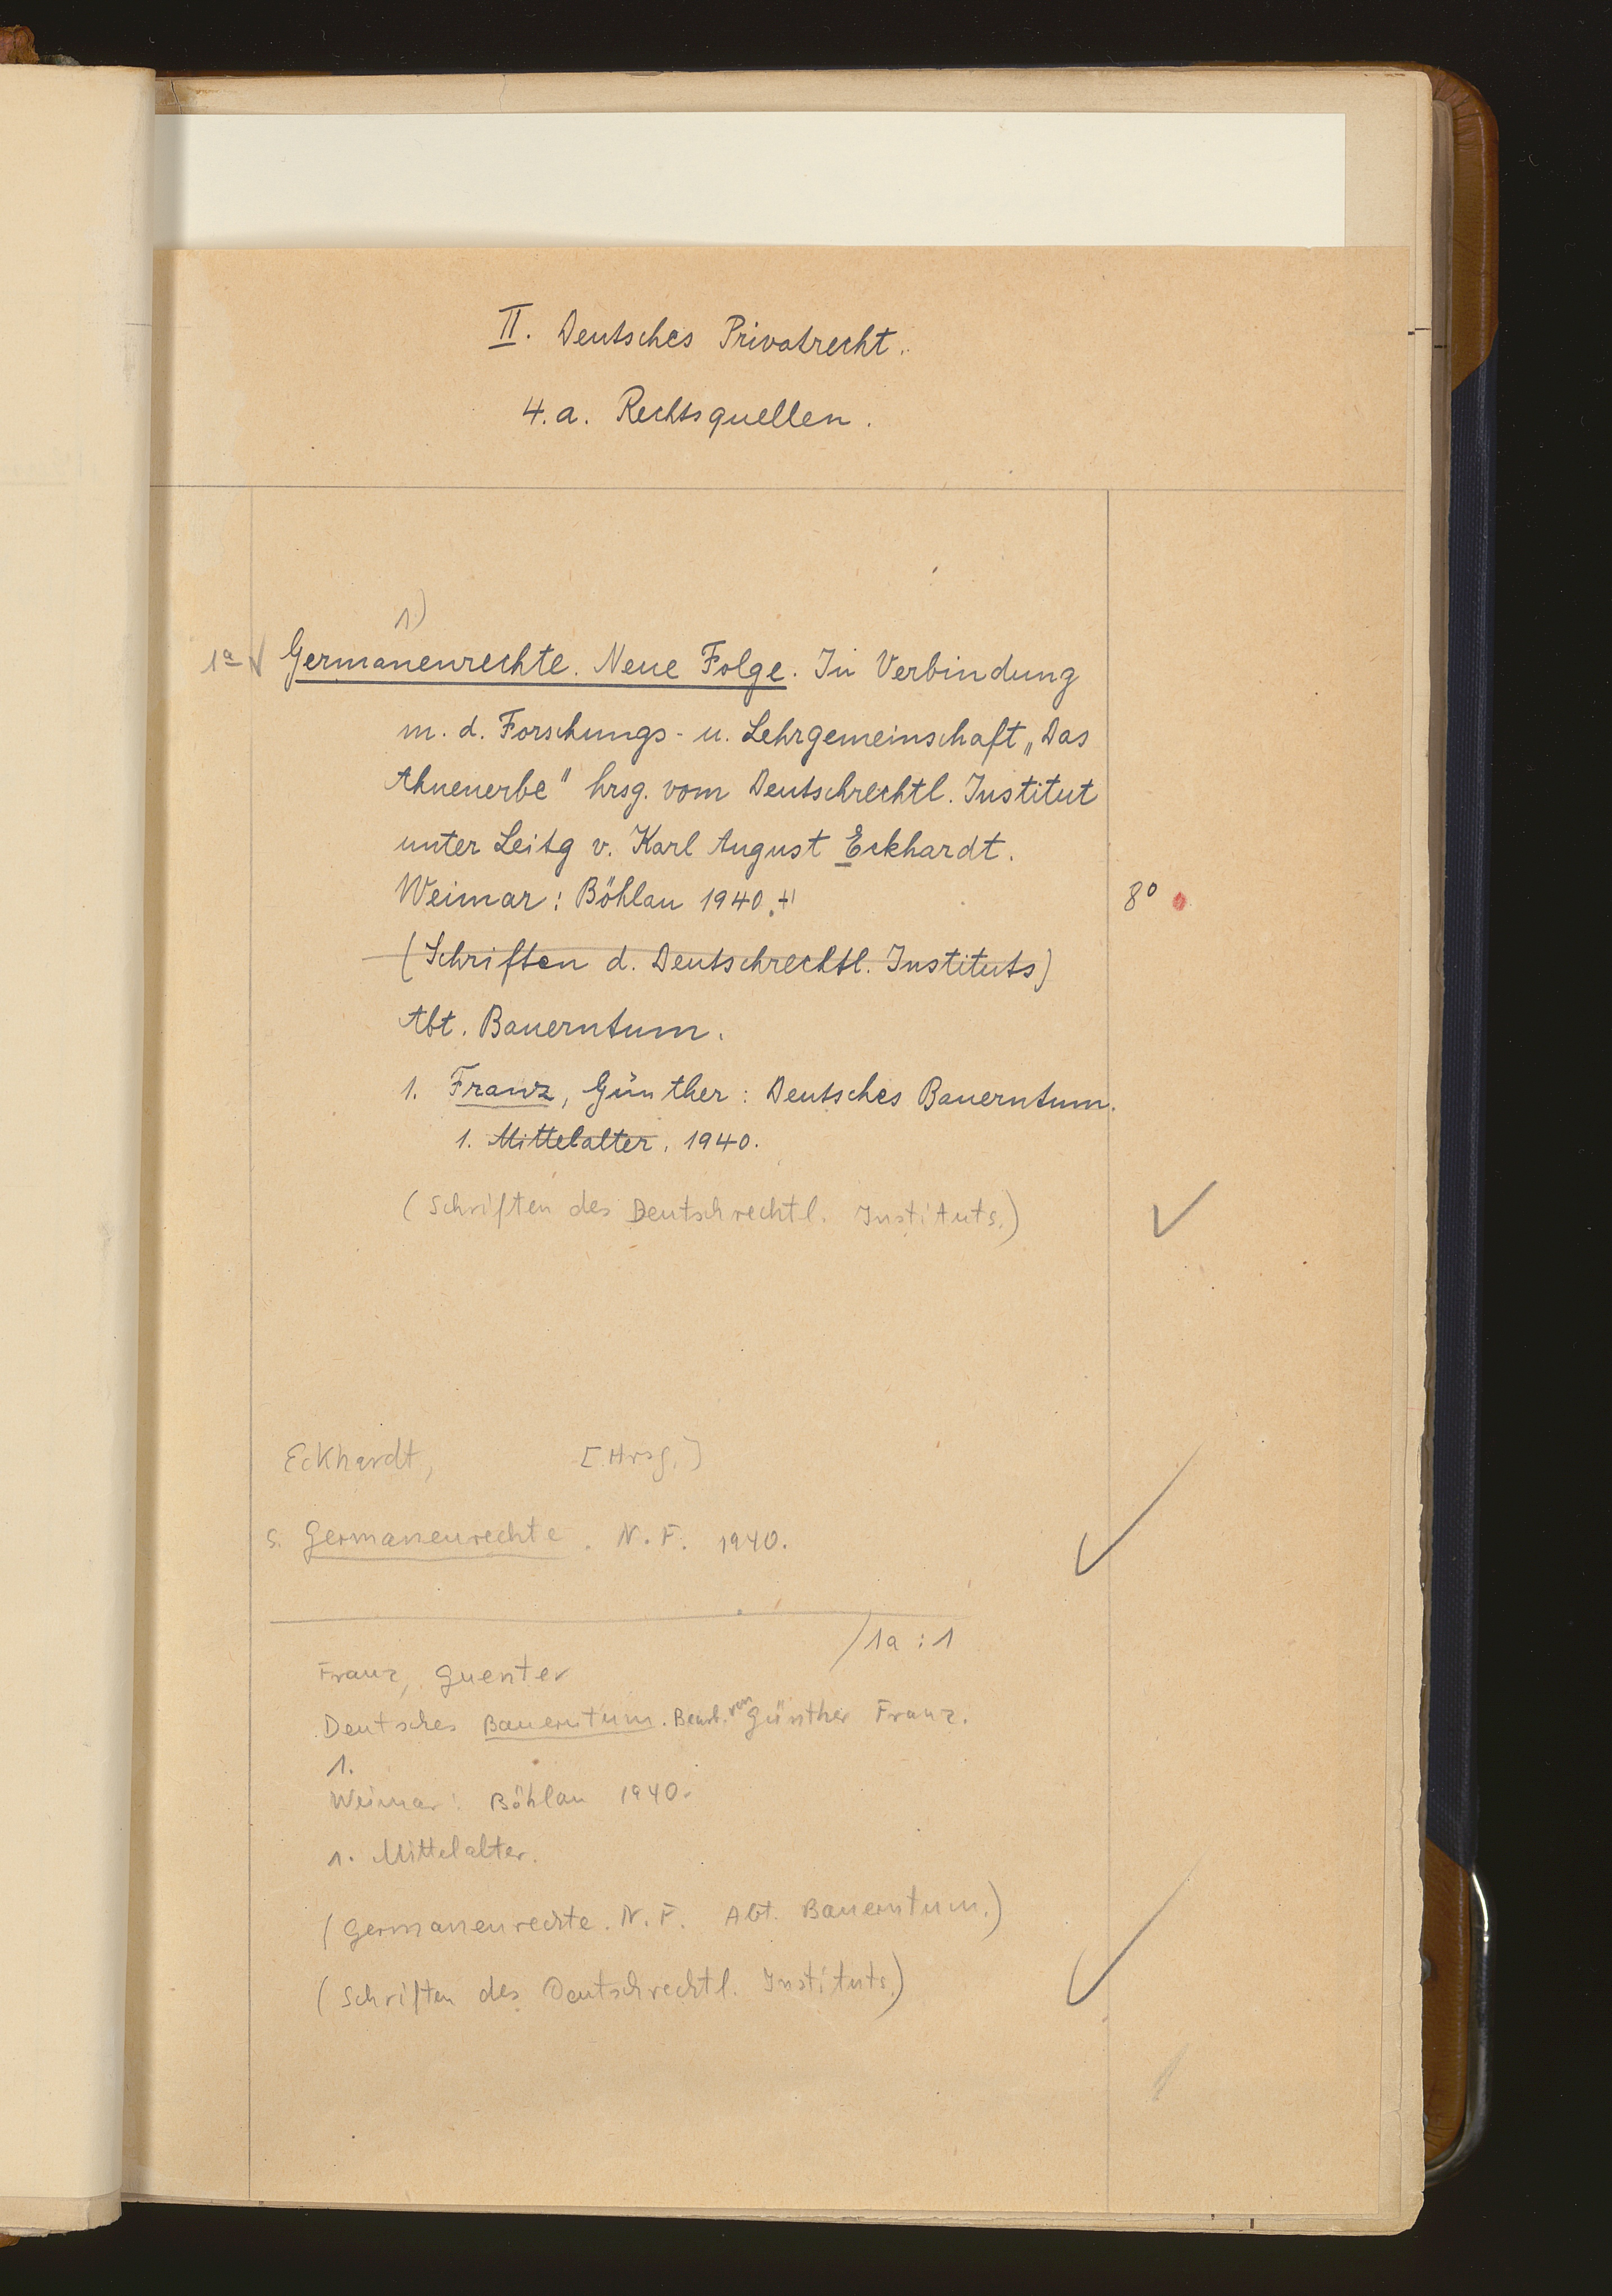 II. Deutsches Privatrecht.
4.a. Rechtsquellen.
1)
1a Germanenrechte. Neue Folge. In Verbindung
m. d. Forschungs- u. Lehrgemeinschaft „Das
Ahnenerbe" hrsg. vom Deutschrechtl. Institut
unter Leitg v. Karl August Eckhardt.
Weimar: Böhlau 1940. 8°
(Schriften d. Deutschrechtl. Instituts)
Abt. Bauerntum.
1. Franz, Günther: Deutsches Bauerntum.
1. Mittelalter. 1940.
(Schriften des Deutschrechtl. Instituts.)
Eckhardt, [Hrsg.]
s. Germanenrechte. N. F. 1940.
/1a : 1
Franz, Guenter
Deutsches Bauerntum. Bearb. von Günther Franz.
1.
Weimar: Böhlau 1940.
1. Mittelalter.
(Germanenrechte. N. F. Abt. Bauerntum.)
(Schriften des Deutschrechtl. Instituts.)